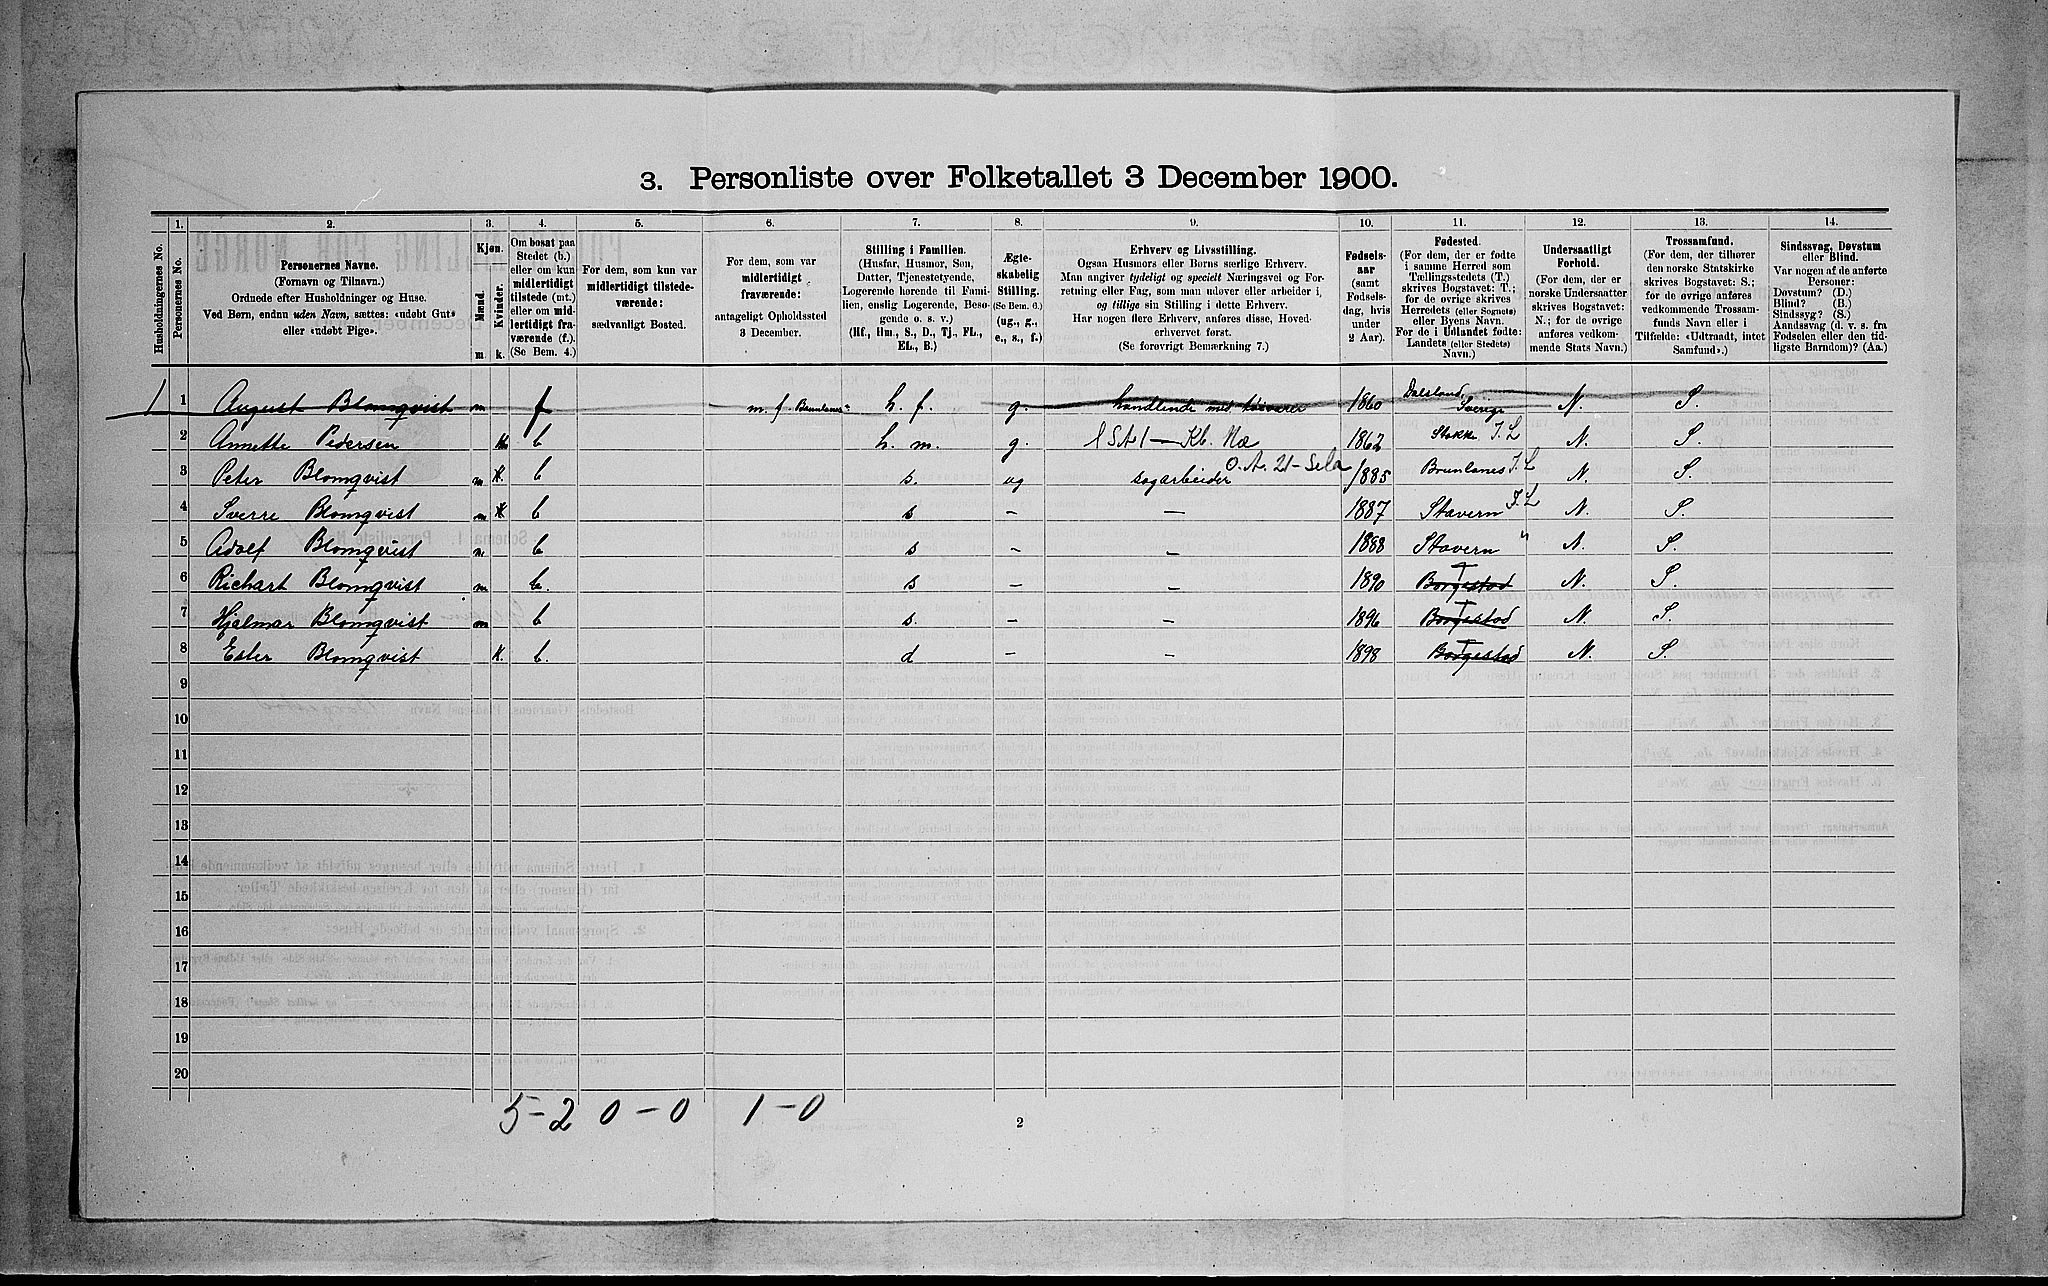 3. Personliste over Folketallet 3 December 1900.
1. 2. 3. 4. 5. 6. 7. 8. 9. 10. 11. 12. 13. 14.
Husholdningernes No.
Personernes No.
Personernes Navne.
(Fornavn og Tilnavn.)
Ordnede efter Husholdninger og Huse.
Ved Børn, endnu uden Navn, sættes: «udøbt Gut»
eller «udøbt Pige».
Kjøn.
Mænd.
Kvinder.
m. k.
Om bosat paa
Stedet (b.)
eller om kun
midlertidigt
tilstede (mt.)
eller om mid-
lertidigt fra-
værende (f.).
(Se Bem. 4.)
For dem, som kun var
midlertidigt tilstede-
værende:
sædvanligt Bosted.
For dem, som var
midlertidigt
fraværende:
antageligt Opholdssted
3 December.
Stilling i Familien.
(Husfar, Husmor, Søn,
Datter, Tjenestetyende,
Logerende hørende til Fami-
lien, enslig Logerende, Besø-
gende o. s. v.)
(Hf., Hm., S., D., Tj., FL.,
EL., B.)
Ægte-
skabelig
Stilling.
(Se Bem. 6.)
(ug., g.,
e., s., f.)
Erhverv og Livsstilling.
Ogsaa Husmors eller Børns særlige Erhverv.
Man angiver tydeligt og specielt Næringsvei og For-
retning eller Fag, som man udøver eller arbeider i,
og tillige sin Stilling i dette Erhverv.
Har nogen flere Erhverv, anføres disse, Hoved-
erhvervet først.
(Se forøvrigt Bemærkning 7.)
Fødsels-
aar
(samt
Fødsels-
dag, hvis
under
2 Aar).
Fødested.
(For dem, der er fødte
i samme Herred som
Tællingsstedets (T.)
skrives Bogstavet: T.;
for de øvrige skrives
Herredets (eller Sognets)
eller Byens Navn.
For de i Udlandet fødte:
Landets (eller Stedets)
Navn.)
Undersaatligt
Forhold.
(For dem, der er
norske Undersaatter
skrives Bogstavet:
N.; for de øvrige
anføres vedkom-
mende Stats Navn.)
Trossamfund.
(For dem, der tilhører
den norske Statskirke
skrives Bogstavet: S.;
for de øvrige anføres
vedkommende Trossam-
funds Navn eller i
Tilfælde: «Udtraadt, intet
Samfund».)
Sindssvag, Døvstum
eller Blind.
Var nogen af de anførte
Personer:
Døvstum? (D.)
Blind? (B.)
Sindssyg? (S.)
Aandssvag (d. v. s. fra
Fødselen eller den tid-
ligste Barndom)? (Aa.)
1 1 August Blomqvist m f m. f. Brunlanes h. f. g. handlende med løsvarer 1860 Dalsland, Sverige N. S.
2 Annette Pedersen k b h. m. g. 1862 Stokke J. L N. S.
3 Peter Blomqvist m k b s. ug sagarbeider 1885 Brunlanes J. L N. S.
4 Sverre Blomqvist m k b s – – 1887 Stavern J. L N. S.
5 Adolf Blomqvist m b s – – 1888 Stavern " N. S.
6 Richart Blomqvist m b. s – – 1890 Borgestad T N. S.
7 Hjalmar Blomqvist m b s. – – 1896 Borgestad T N. S.
8 Ester Blomqvist k. b. d – – 1898 Borgestad T N. S.
9
10
11
12
13
14
15
16
17
18
19
20
5-2 0-0 1-0
2